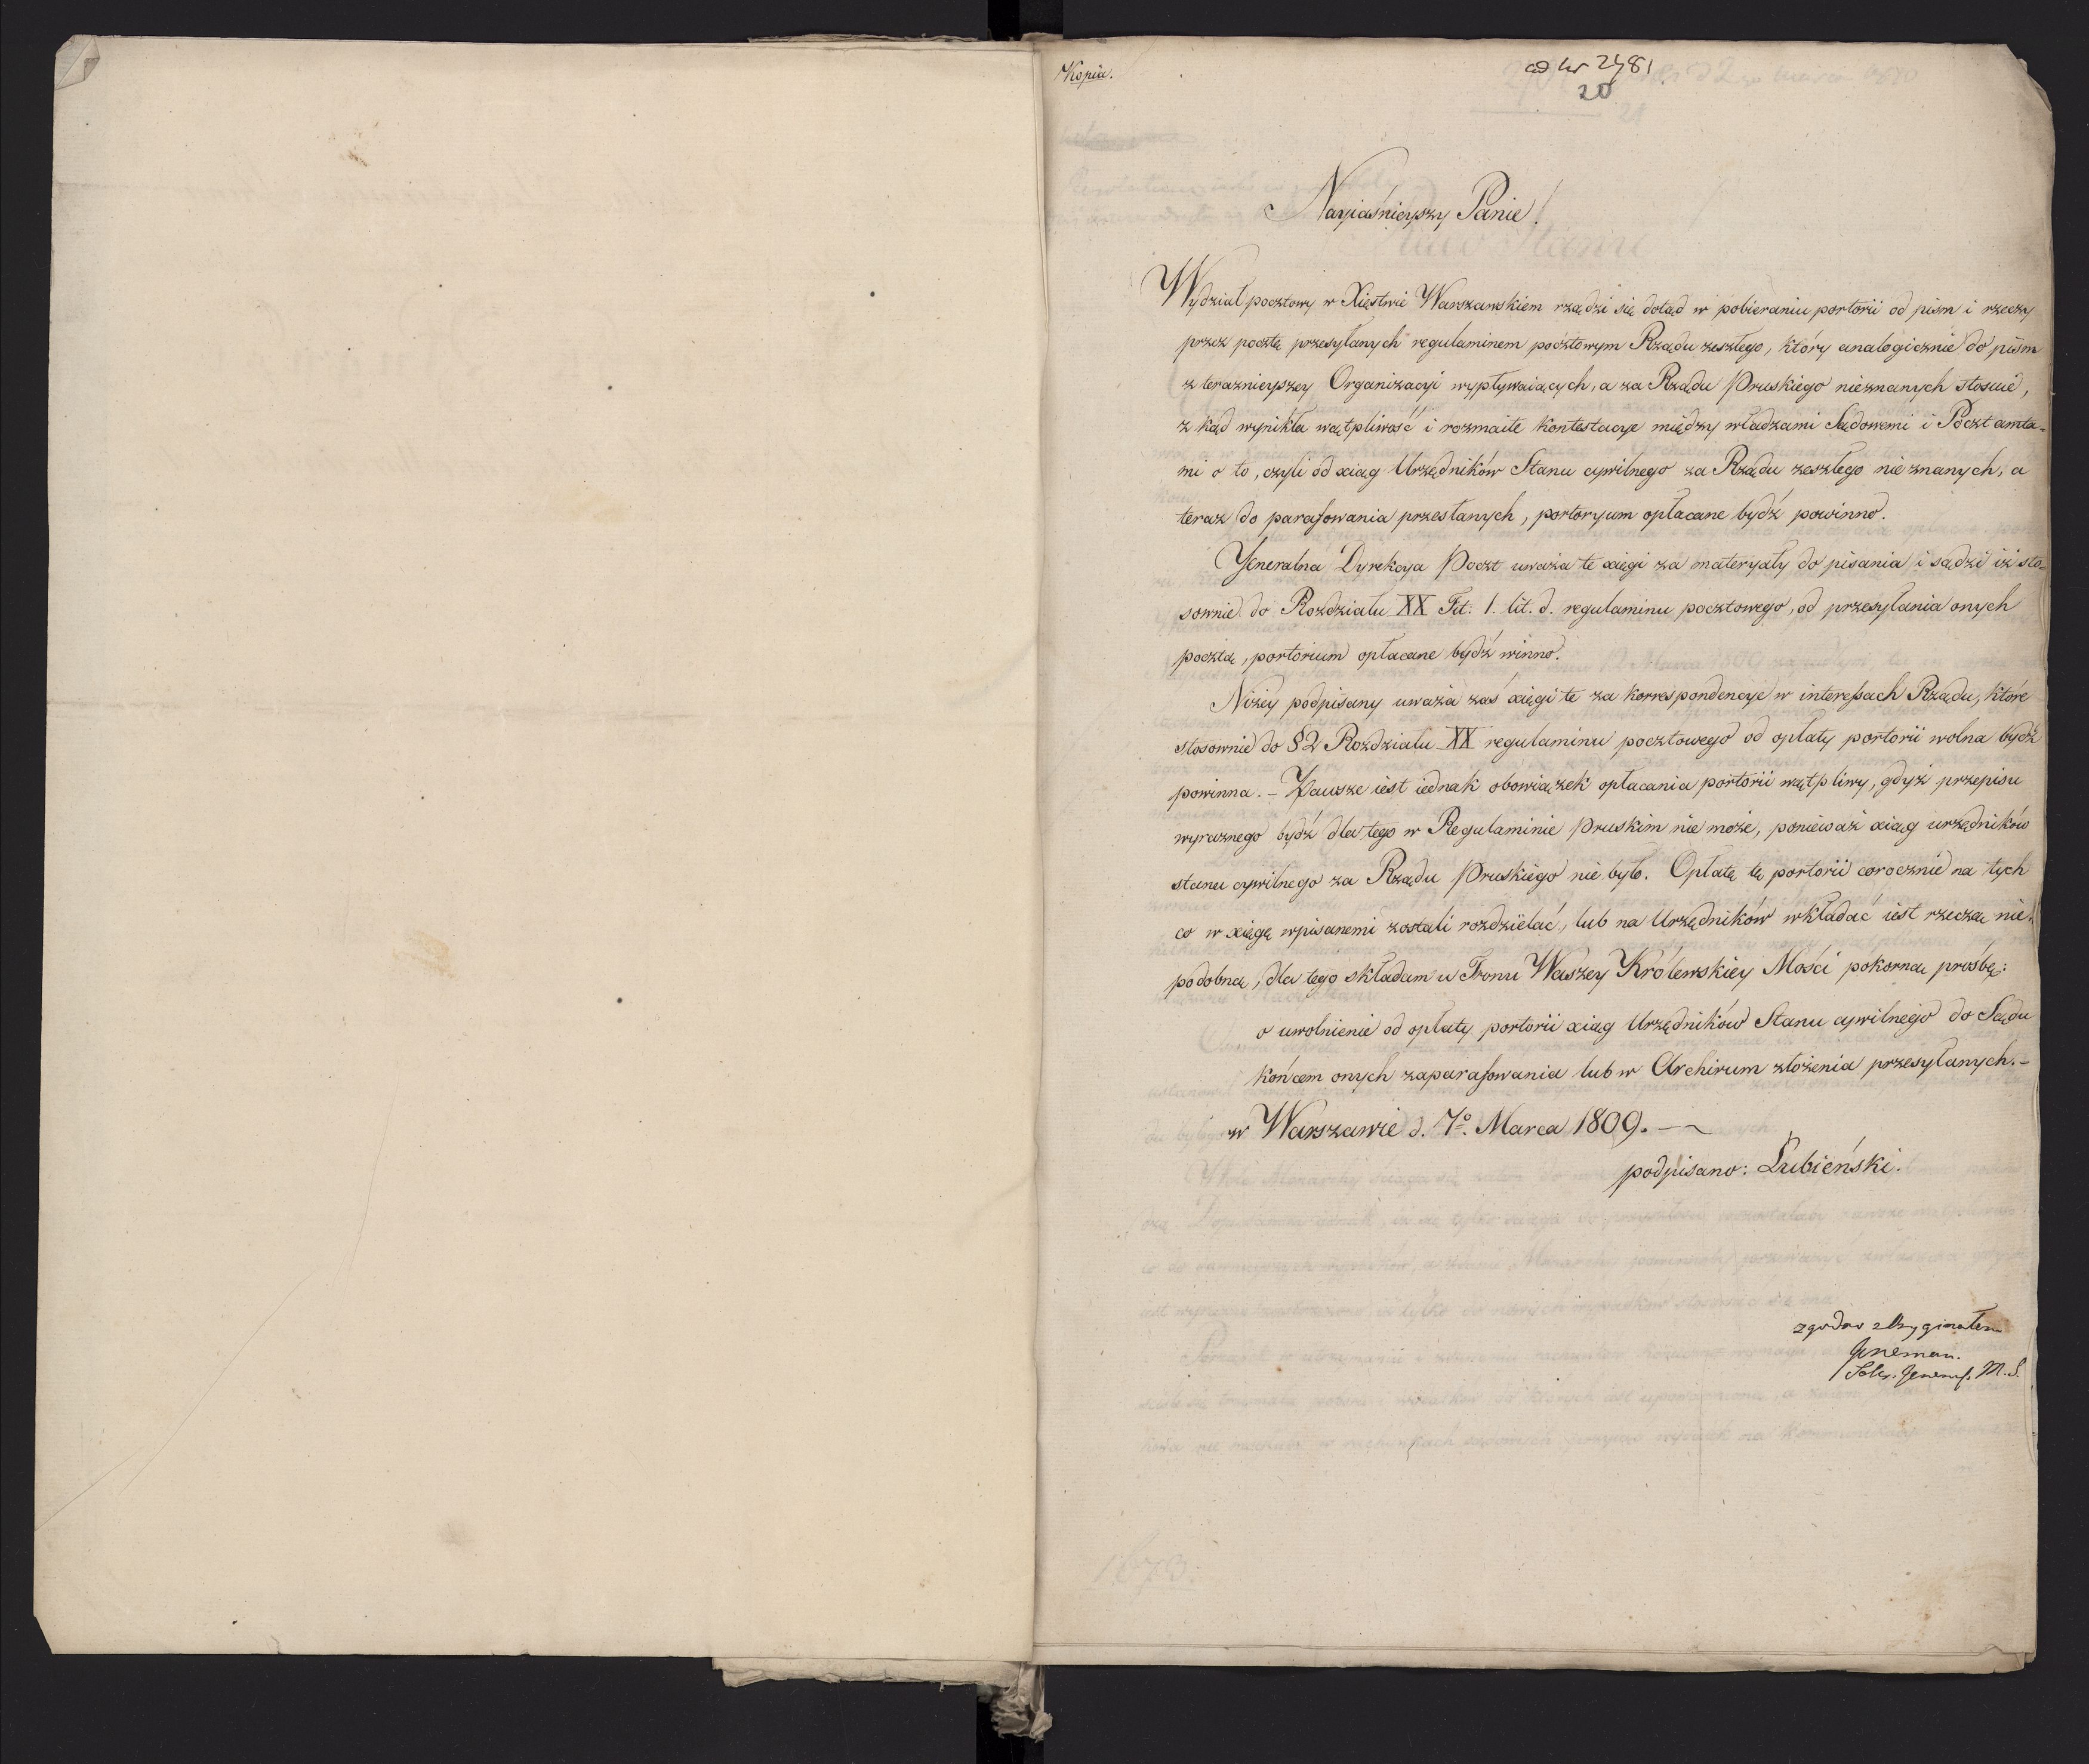 Kopia.
ad Nr 2481
20
Nayiaśnieyszy Panie!
Wydział pocztowy w Xięstwie Warszawskiem rządzi się dotąd w pobieraniu portorii od pism i rzeczy
przez pocztę przesyłanych regulaminem pocztowym Rządu zeszłego, który analogicznie do pism
z teraznieyszey Organizacyi wypływaiących, a za Rządu Pruskiego nieznanych stosuie,
z kąd wynikła wątpliwość i rozmaite kontestacye między władzami Sądowemi i Pocztamta=
mi o to, czyli od xiąg Urzędników Stanu cywilnego za Rządu zeszłego nie znanych, a
teraz do parafowania przesłanych, portoryum opłacane bydź powinno.
Jeneralna Dyrekcya Poczt uważa te xięgi za materyały do pisania i sądzi iż sto=
sownie do Rozdziału XX Tit: 1. lit. d. regulaminu pocztowego, od przesyłania onych
pocztą, portorium opłacane bydź winno.
Niżey podpisany uważa zaś xięgi te za korrespondencye w interessach Rządu, które
stosownie do § 2 Rozdziału XX regulaminu pocztowego od opłaty portorii wolna bydź
powinna. – Zawsze iest iednak obowiązek opłacania portorii wątpliwy, gdyż przepisu
wyraznego bydź dla tego w Regulaminie Pruskim nie może, ponieważ xiąg urzędników
stanu cywilnego za Rządu Pruskiego nie było. Opłatę tę portorii corocznie na tych
co w xięgę wpisanemi zostali rozdzielać, lub na Urzędników wkładać iest rzeczą nie=
podobną, dla tego składam u Tronu Waszey Królewskiey Mości pokorną prosbę:
o uwolnienie od opłaty portorii xiąg Urzędników Stanu cywilnego do Sądu
końcem onych zaparafowania lub w Archivum złożenia przesyłanych. –
w Warszawie d. 7º. Marca 1809. –
podpisano: Łubieński.
zgodno z Oryginałem
Sekr. Jeneral. M. S.